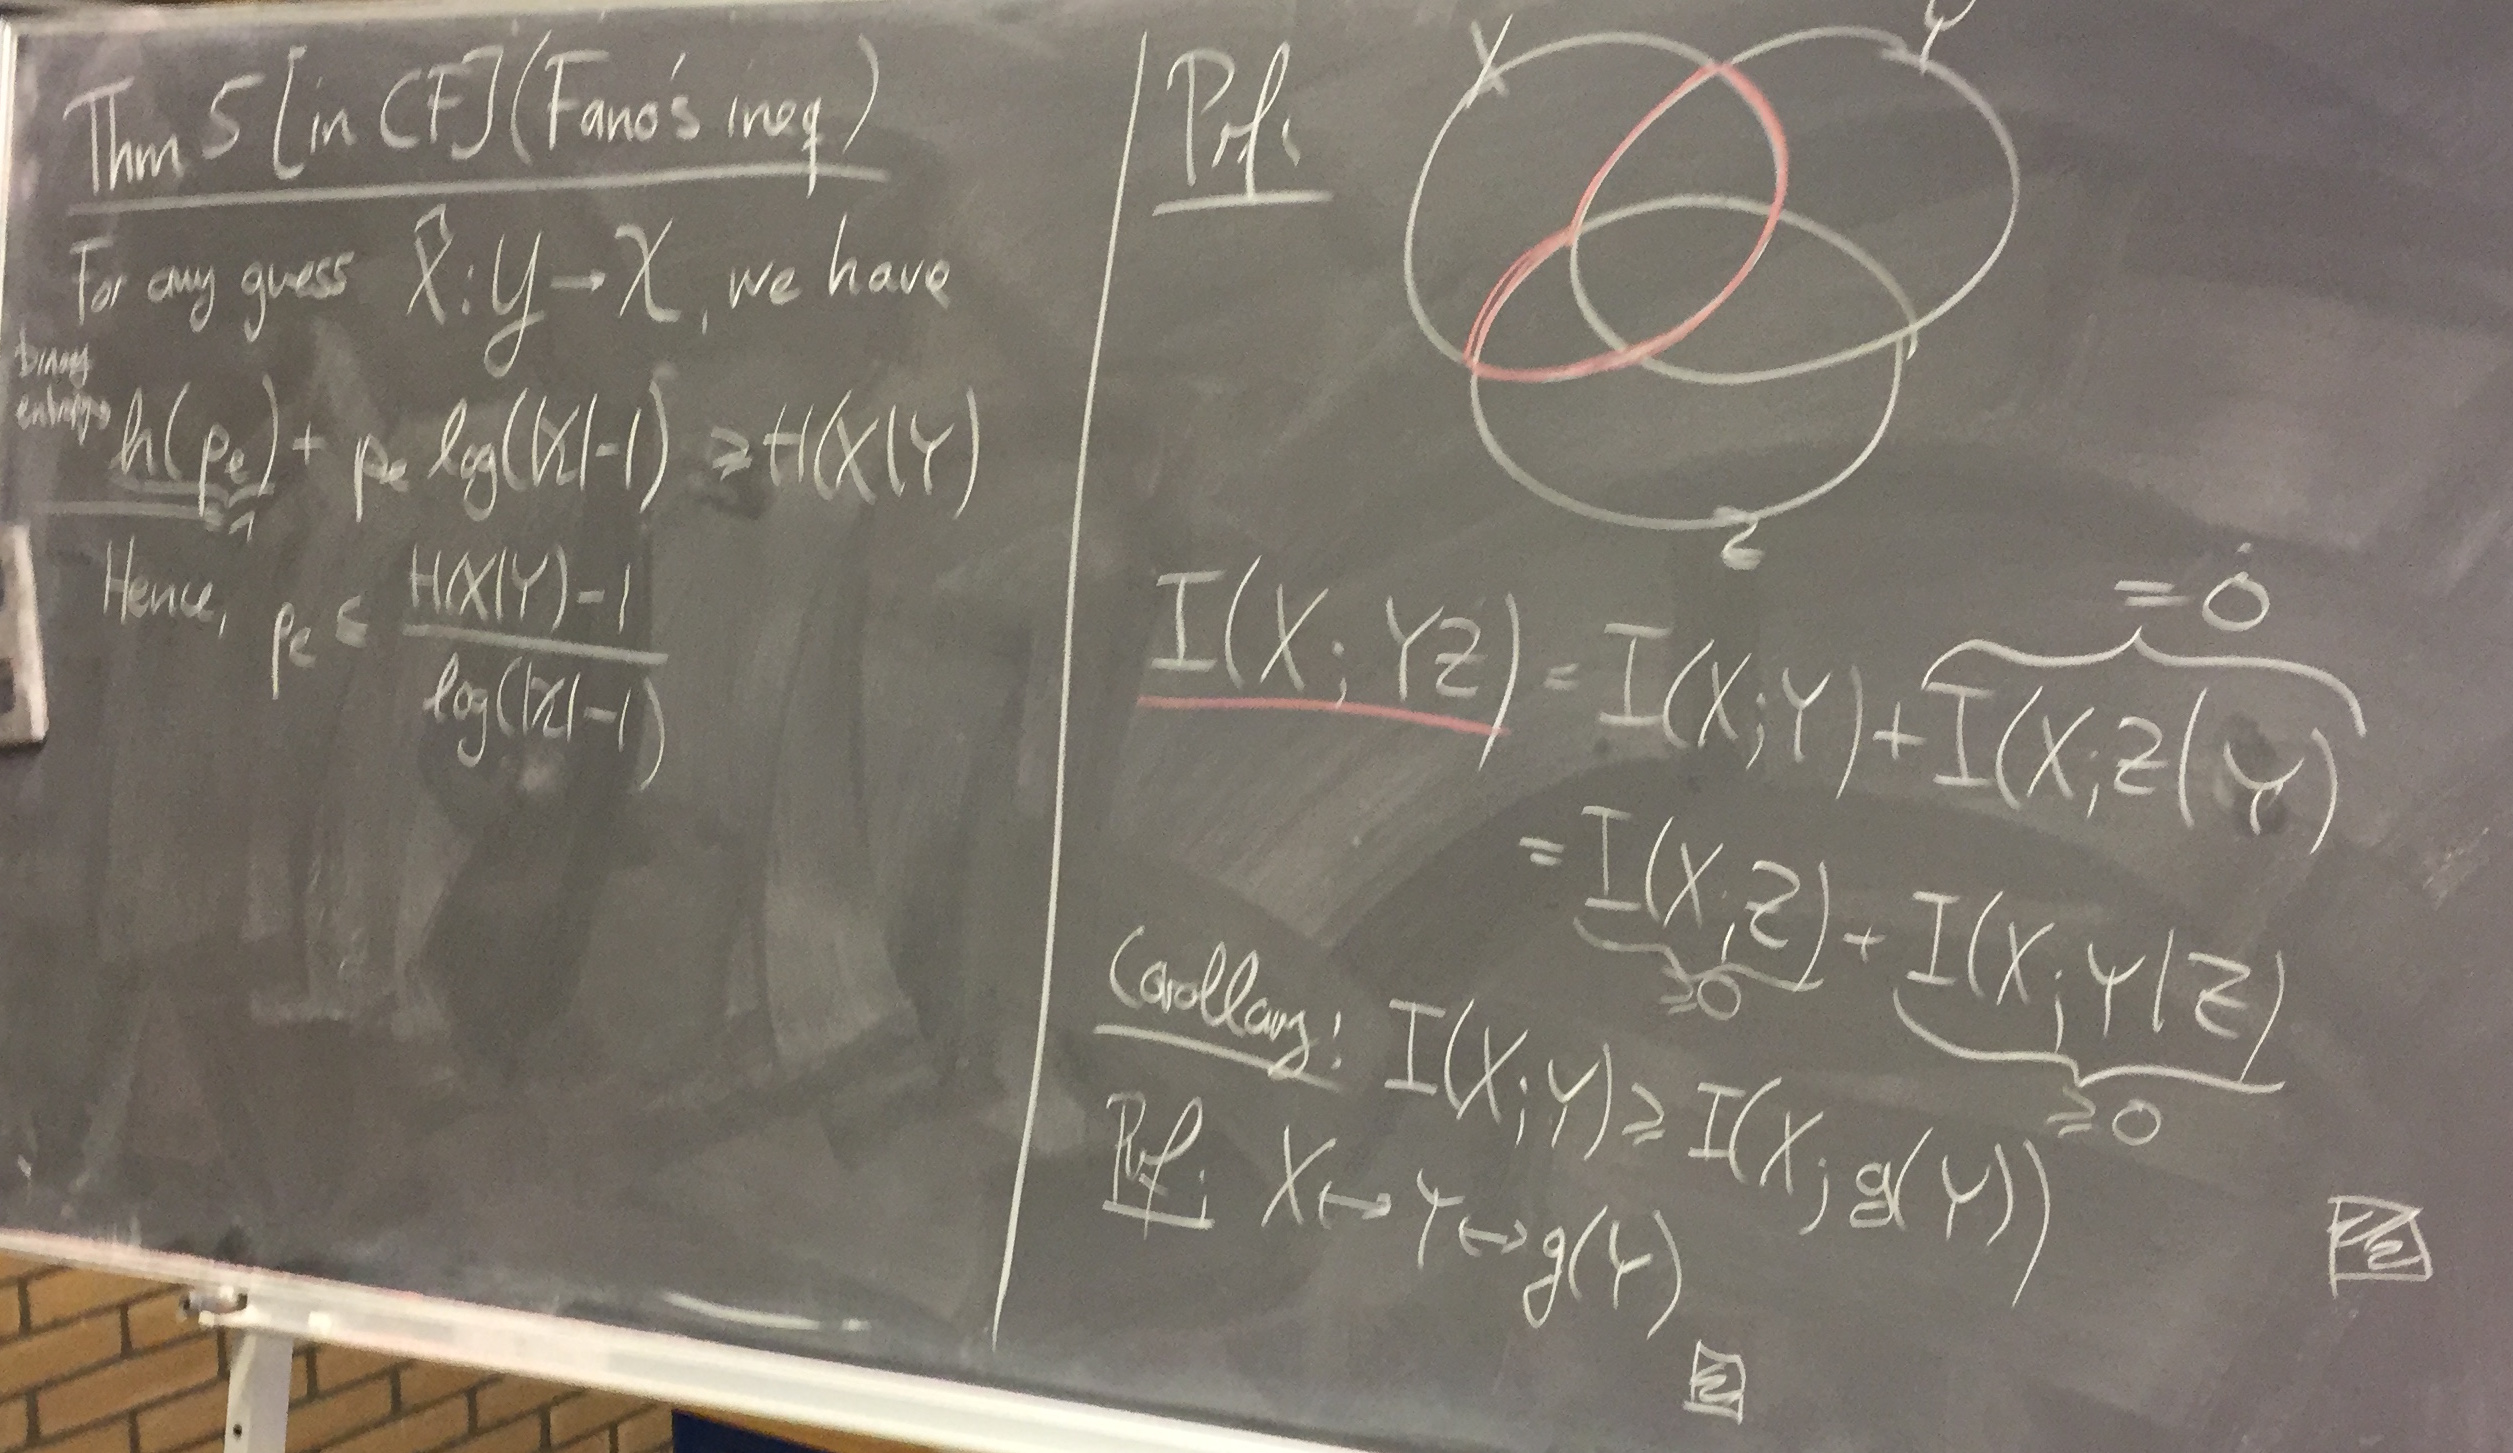 Thm 5 [in CF] (Fano's ineq)
For any guess X̂: 𝒴 → 𝒳, we have
binary
entropy
h(pₑ) + pₑ log(|𝒳|-1) ≥ H(X|Y)
≤ 1
Hence, pₑ ≤ (H(X|Y) - 1) / log(|𝒳|-1)
Prf:
X
Y
Z
= 0
I(X; YZ) = I(X;Y) + I(X;Z|Y)
= I(X;Z) + I(X;Y|Z)
≥0
≥0
Corollary: I(X;Y) ≥ I(X; g(Y))
Prf: X ↔ Y ↔ g(Y)